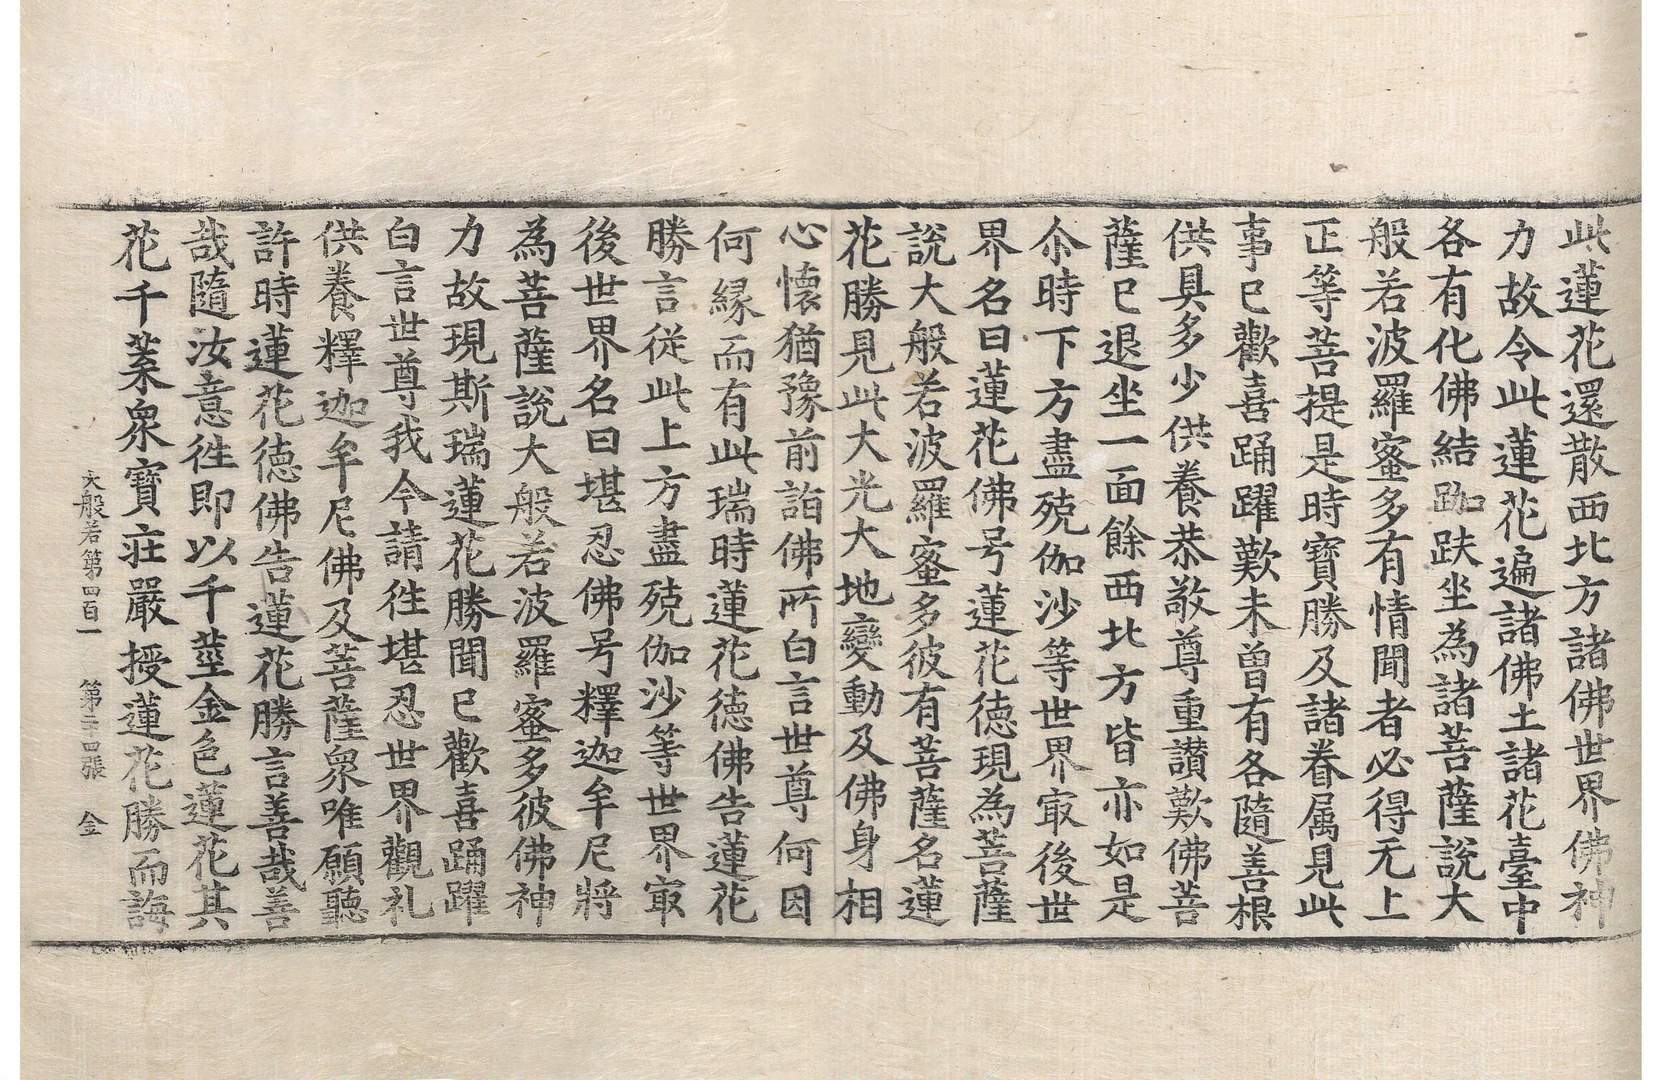 此蓮花還散西北方諸佛世界佛神
力故令此蓮花遍諸佛土諸花臺中
各有化佛結跏趺坐為諸菩薩說大
般若波羅蜜多有情聞者必得无上
正等菩提是時寶勝及諸眷属見此
事已歡喜踊躍歎未曾有各隨善根
供具多少供養恭敬尊重讃歎佛菩
薩已退坐一面餘西北方皆亦如是
尒時下方盡殑伽沙等世界㝡後世
界名曰蓮花佛号蓮花德現為菩薩
說大般若波羅蜜多彼有菩薩名蓮
花勝見此大光大地變動及佛身相
心懷猶豫前詣佛所白言世尊何因
何緣而有此瑞時蓮花德佛告蓮花
勝言從此上方盡殑伽沙等世界㝡
後世界名曰堪忍佛号釋迦牟尼將
為菩薩說大般若波羅蜜多彼佛神
力故現斯瑞蓮花勝聞已歡喜踊躍
白言世尊我今請徃堪忍世界觀礼
供養釋迦牟尼佛及菩薩衆唯願聽
許時蓮花德佛告蓮花勝言善哉善
哉隨汝意徃即以千莖金色蓮花其
花千葉衆寶莊嚴授蓮花勝而誨
大般若第四百一 第二十四張 金